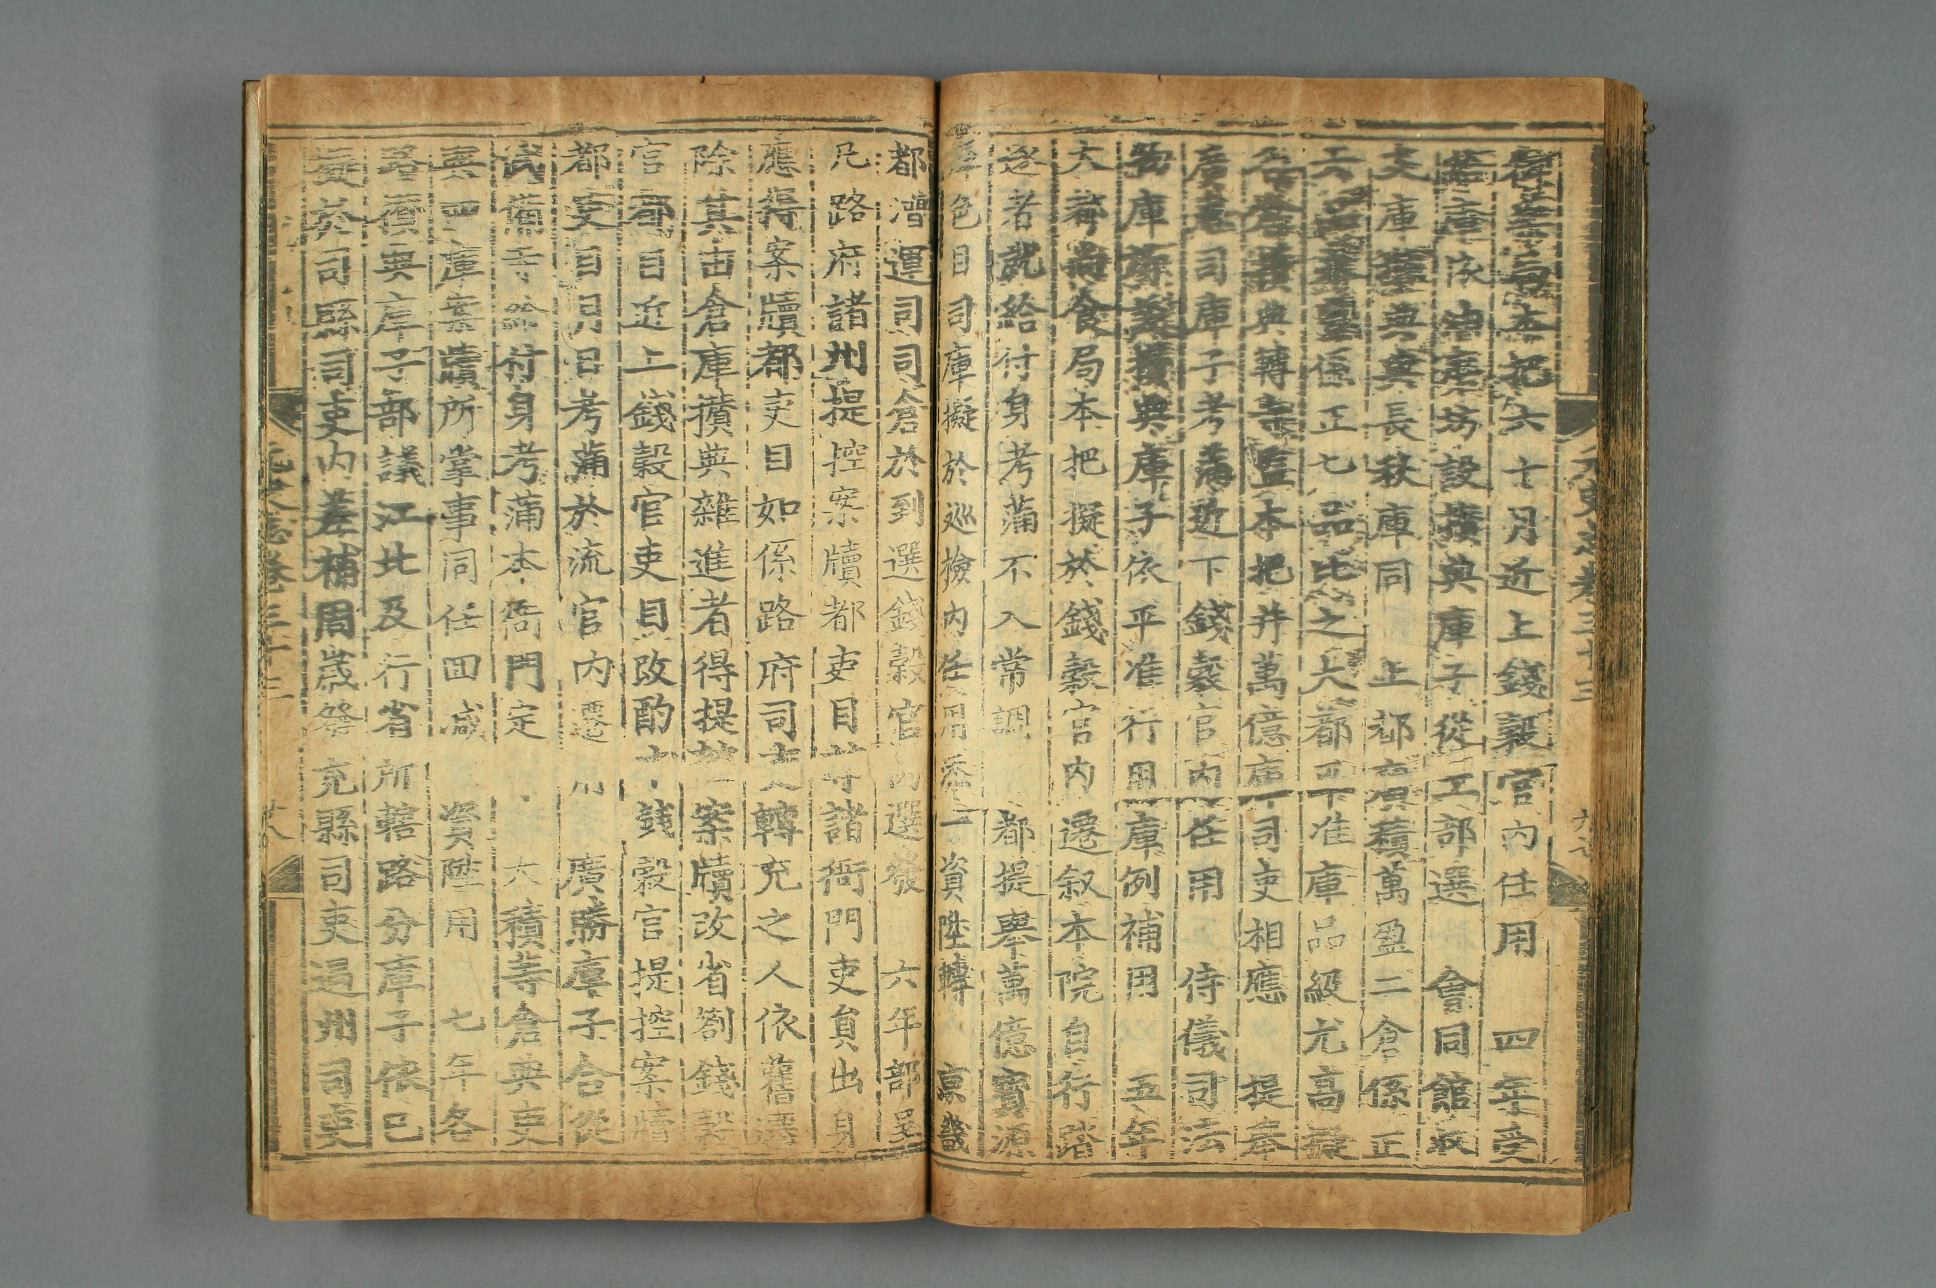 本把六十月近上錢穀官內任用 四年受
庫依油磨坊設攢典庫子從工部選 會同館收
支庫攢典與長秋庫同 上都 積萬盈二倉係正
係正七品比之大都平准庫品級尤高擬
各倉攢典轉寺監本把并萬億庫司吏相應 提舉
廣惠司庫子考滿近下錢穀官內任用 侍儀司法
物庫 攢典庫子依平准行用庫例補用 五年
大都尚食局本把擬於錢穀官內遷敘本院自行踏
逐者就給付身考滿不入常調 都提舉萬億寶源
庫色目司庫擬於巡檢內任用添一資陞轉 京畿
都漕運司司倉於到選錢穀官內選發 六年部呈
凡路府諸州提控案牘都吏目 諸衙門吏員出身
應得案牘都吏目如係路府司 轉充之人依舊遷
除其由倉庫攢典雜進者得提 案牘改省劄錢穀
官都目近上錢穀官吏目改酌 錢穀官提控案牘
都吏目月日考滿於流官內遷用 廣勝庫子合從
武備寺給付身考滿本衙門定 大積等倉典吏
與四庫案牘所掌事同任回減 資陞用 七年各
路寶典庫子部議江北及行省所轄路分庫子依已
縣司吏內差補周歲發充縣司吏遇州司吏
元史志卷三十三